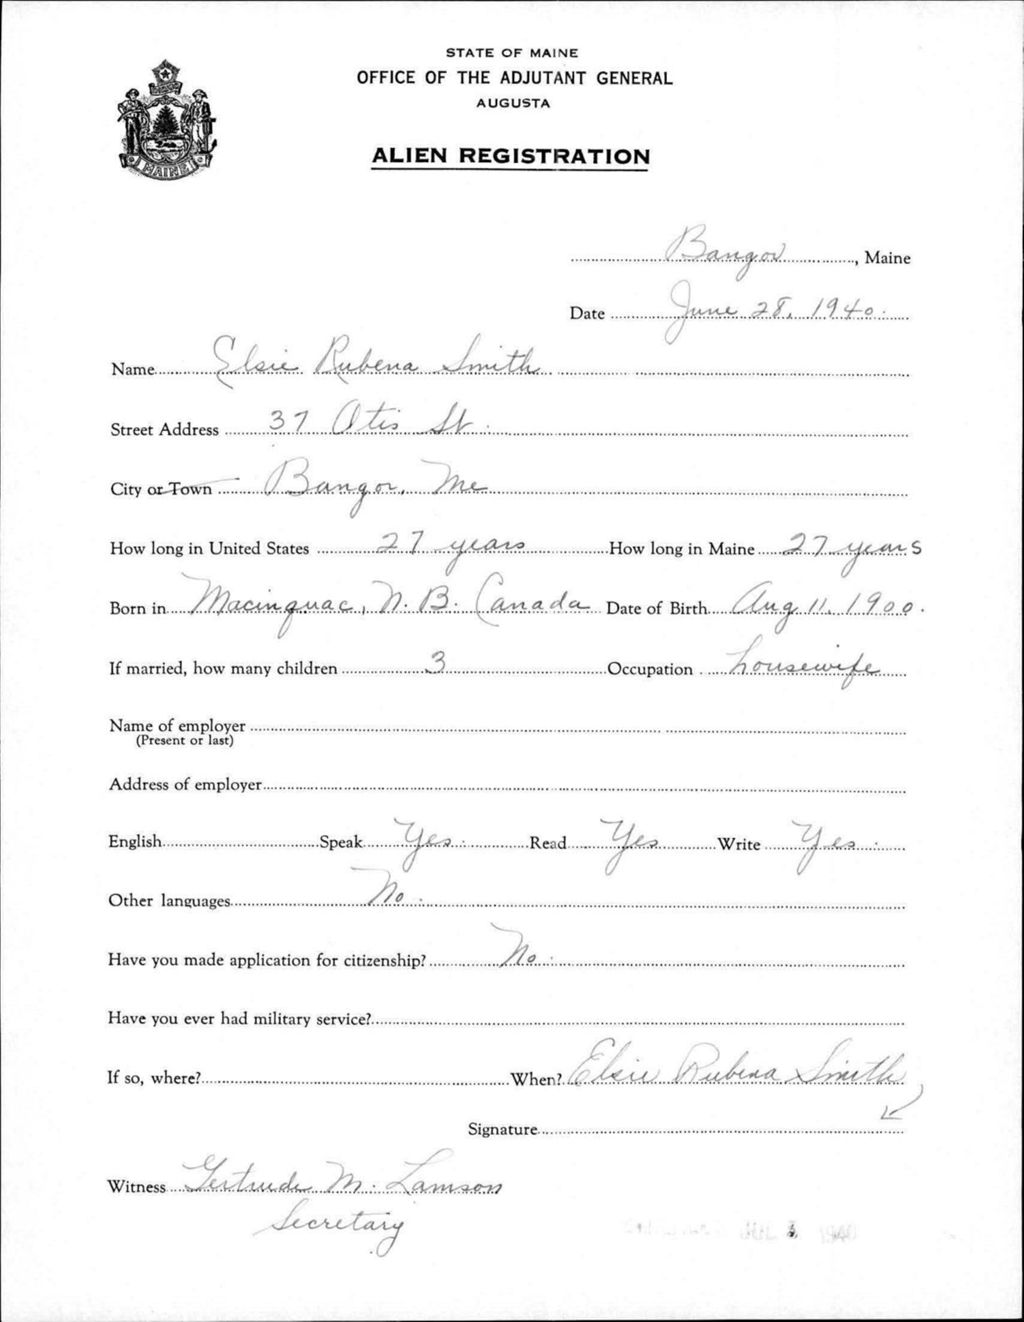 STATE OF MAINE
OFFICE OF THE ADJUTANT GENERAL
AUGUSTA
ALIEN REGISTRATION
MAINE
Bangor, Maine
Date June 28, 1940.
Name Elsie Rubena Smith
Street Address 37 Otis St.
City or Town Bangor, Me
How long in United States 27 years How long in Maine 27 years
Born in Macinquac, N. B. Canada Date of Birth Aug 11, 1900.
If married, how many children 3 Occupation housewife
Name of employer
(Present or last)
Address of employer
English Speak Yes. Read Yes Write Yes.
Other languages No.
Have you made application for citizenship? No.
Have you ever had military service?
If so, where? When? Elsie Rubena Smith
Signature
Witness Gertrude M. Lamson
Secretary